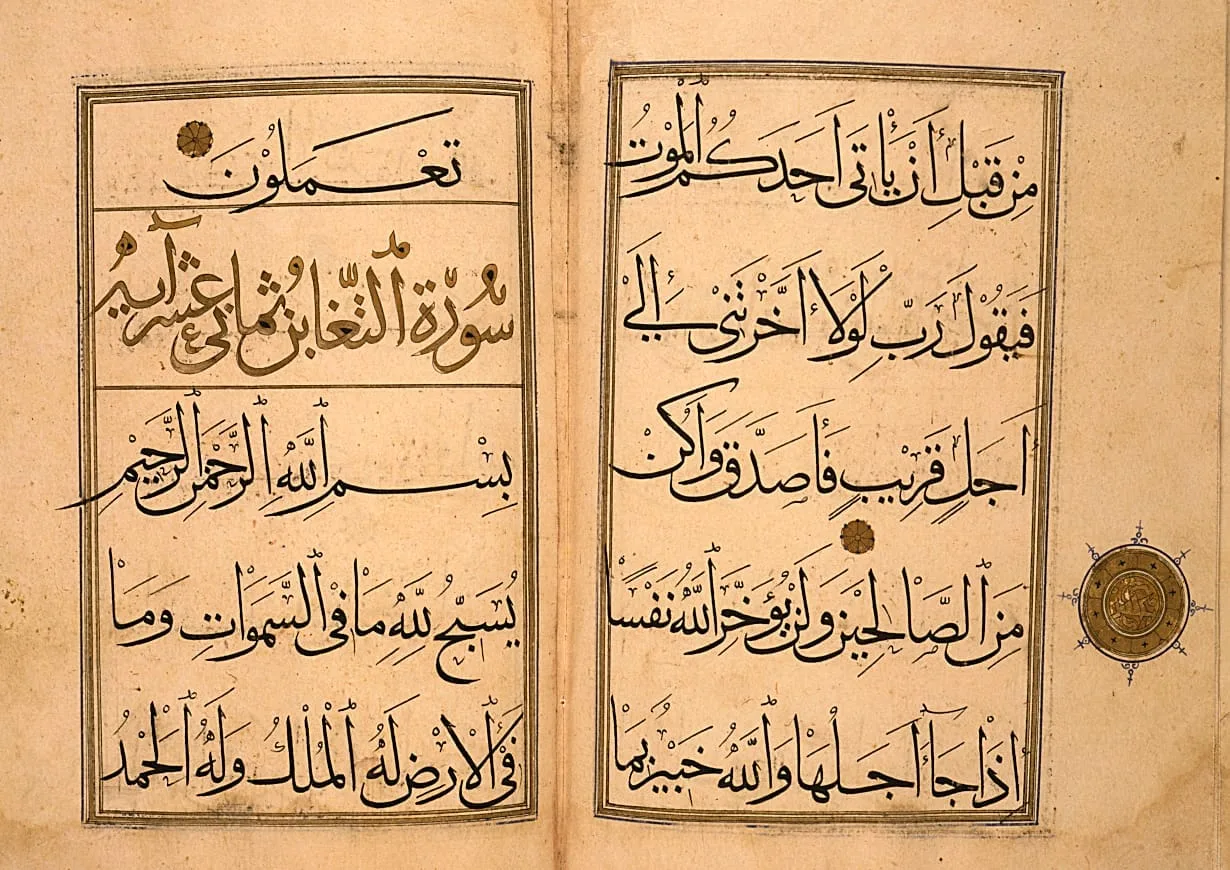 مِنْ قَبْلِ أَنْ يَأْتِيَ أَحَدَكُمُ الْمَوْتُ
فَيَقُولَ رَبِّ لَوْلَا أَخَّرْتَنِي إِلَىٰ
أَجَلٍ قَرِيبٍ فَأَصَّدَّقَ وَأَكُنْ
مِنَ الصَّالِحِينَ وَلَنْ يُؤَخِّرَ اللَّهُ نَفْسًا
إِذَا جَاءَ أَجَلُهَا وَاللَّهُ خَبِيرٌ بِمَا
تَعْمَلُونَ
سُورَةُ التَّغَابُنِ ثماني عشر آية
بِسْمِ اللَّهِ الرَّحْمَٰنِ الرَّحِيمِ
يُسَبِّحُ لِلَّهِ مَا فِي السَّمَوَاتِ وَمَا
فِي الْأَرْضِ لَهُ الْمُلْكُ وَلَهُ الْحَمْدُ